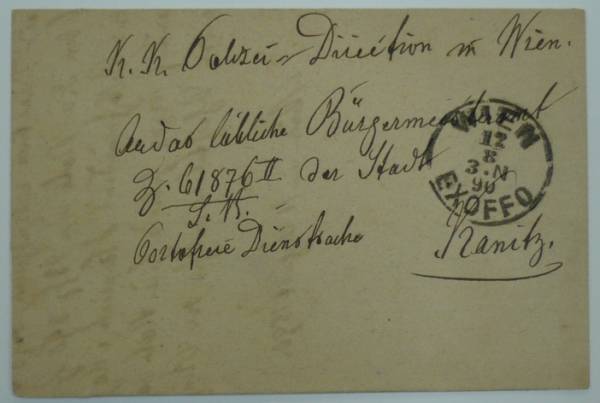 K. K. Polizei-Direction in Wien.
An das löbliche Bürgermeisteramt
Z. 61876 II der Stadt
S. B.
Portofreie Dienstsache Kanitz.
WIEN
12
8
3. N
90
EX OFFO